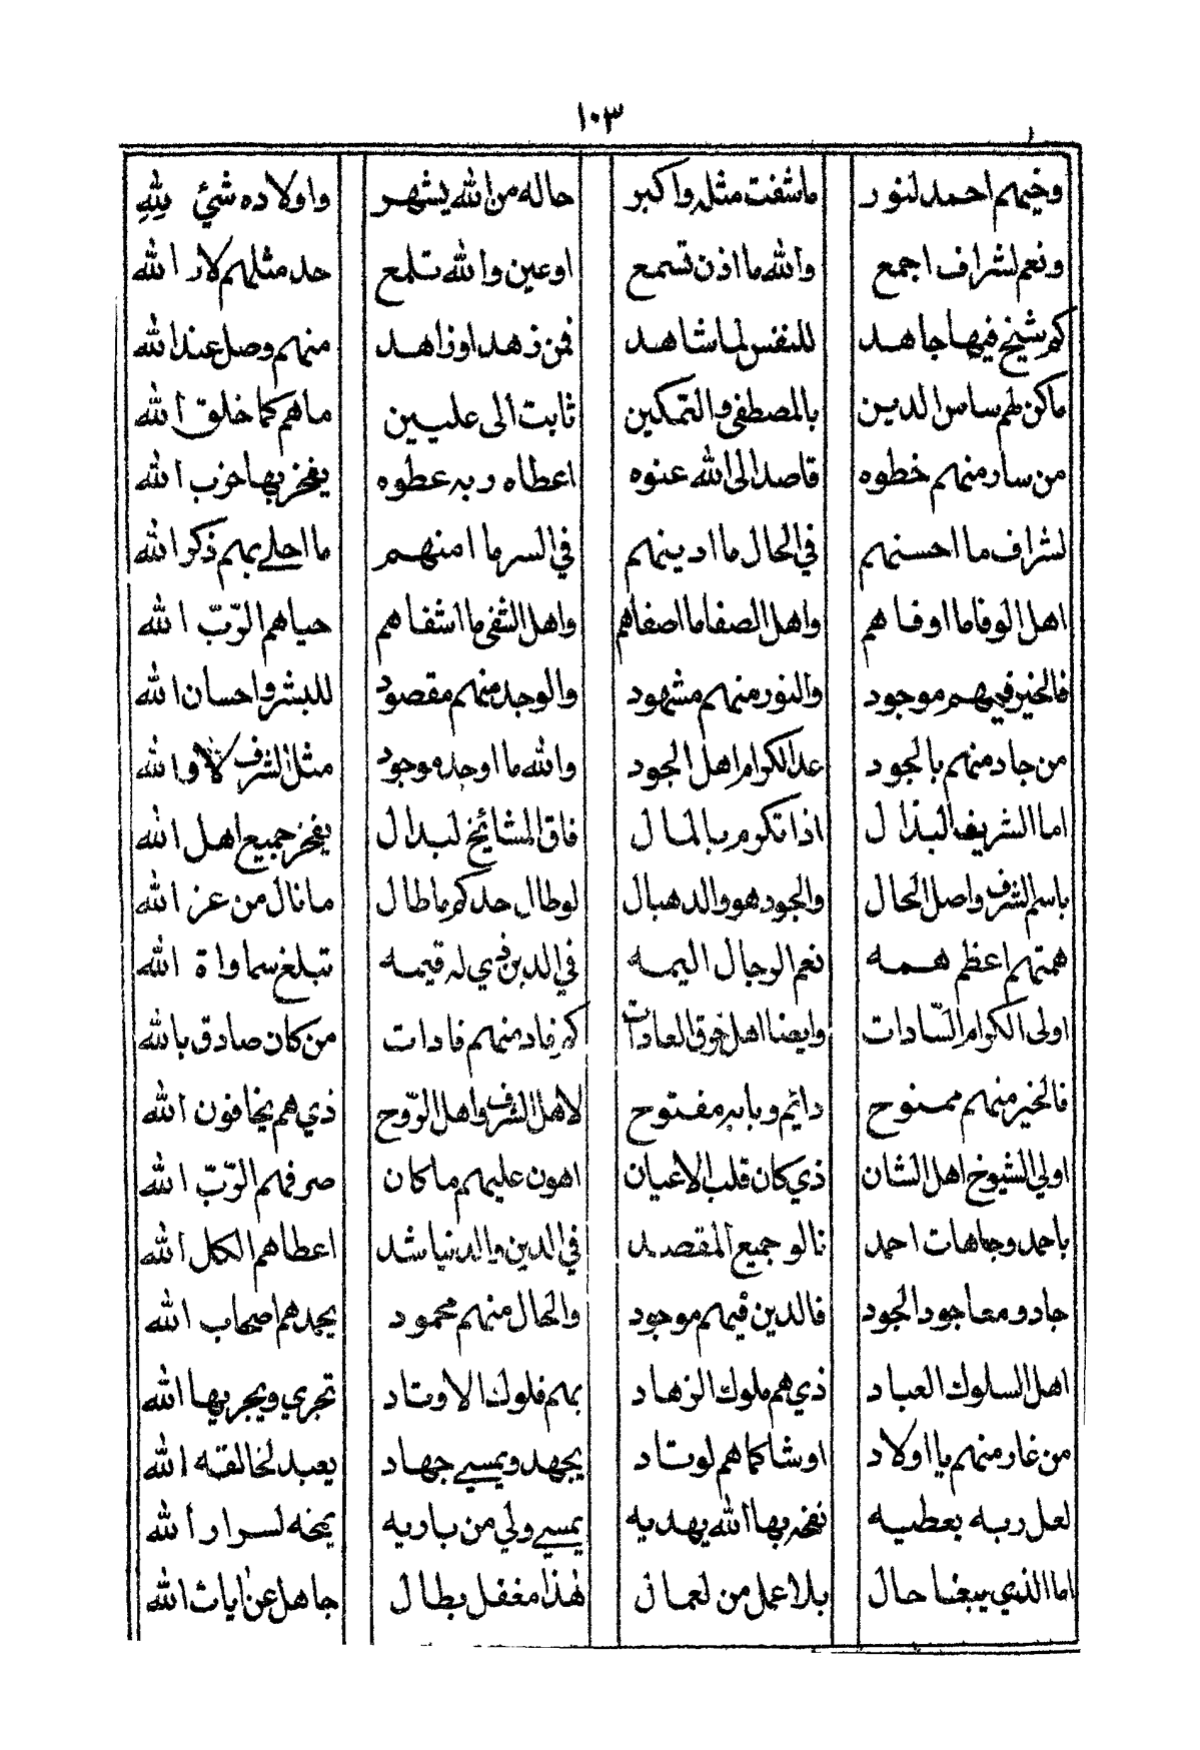 ١٠٣
وخيهم احمد لنور ماشفت مثله واكبر حاله من الله يشهر واولاده شيئ لله
ونعم لشراف اجمع والله ما اذن تسمع او عين والله تلمع حد مثلهم لا رالله
كم شيخ فيها جاهد للنفس لما شاهد فمن زهد او زاهد منهم وصل عند الله
ماكن لهم ساس الدين بالمصطفى والتمكين ثابت الى عليين ماهم كما خلق الله
من سار منهم خطوه قاصد الى الله عنوه اعطاه ربه عطوه يفخر بها حزب الله
لشراف ما احسنهم في الحال ما ادينهم في السر ما امنهم ما احلى بهم ذكر الله
اهل الوفا ما اوفاهم واهل الصفا ما اصفاهم واهل الشفى ما اشفاهم حياهم الرّبّ الله
فالخير فيهم موجود والنور منهم مشهود والوجد منهم مقصود للبشر واحسان الله
من جاد منهم بالجود عد الكرام اهل الجود والله ما اوجد موجود مثل الشرف كلا والله
اما الشريف البذال اذا تكرم بالمال فاق المشائخ لبدال يفخر جميع اهل الله
باسم الشرف واصل الحال والجود هو والد هبال لو طال حد كم ما طال ما نال من عز الله
همتهم اعظم همه نعم الرجال اليمه في الدين ذي له قيمه تبلغ سماواة الله
اولى الكرام السّادات وايضا اهل خرق العادات كم فاد منهم فادات من كان صادق بالله
فالخير منهم ممنوح دائم وبابه مفتوح لاهل الشرف واهل الرّوح ذي هم يخافون الله
اولي الشيوخ اهل الشان ذي كان قلب الاعيان اهون عليهم ما كان صرفهم الرّبّ الله
باحمد وجاهات احمد نالو جميع المقصد في الدين والدنيا شد اعطاهم الكل الله
جادو معا جود الجود فالدين فيهم موجود والحال منهم محمود يجدهم اصحاب الله
اهل السلوك العباد ذي هم ملوك الزهاد بهم فلوك الاوتاد تجري ويجريها الله
من غار منهم يا اولاد اوشا كما هم لوتاد يجهد ويمسي جهاد يعبد لخالقه الله
لعل ربه يعطيه نفخه بها الله يهديه يمسي ولي من باريه يمخه لسرار الله
اما الذي يبغا حال بلا عمل من لعمال لهذا مغفل بطال جاهل عن ايات الله